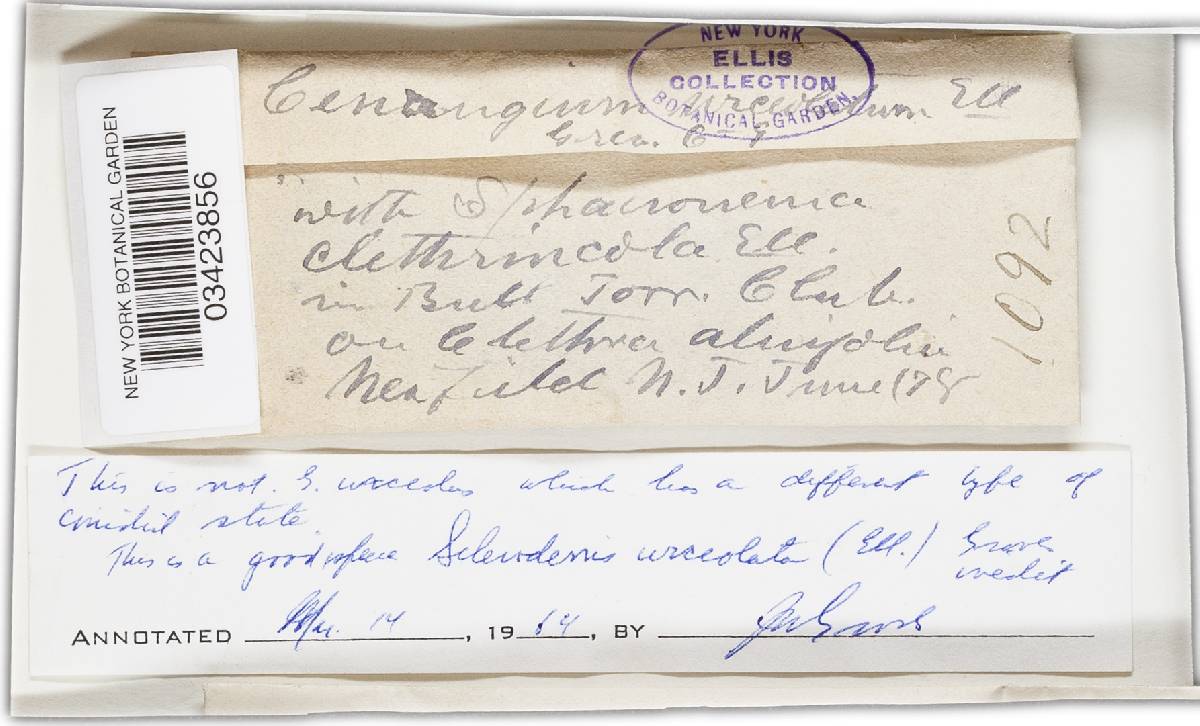 NEW YORK BOTANICAL GARDEN
03423856
NEW YORK
ELLIS
COLLECTION
BOTANICAL GARDEN.
Cenangium urceolatum Ell
Grev.
with Sphaeronema
clethrincola Ell.
in Bull Torr. Club.
on Clethra alnifolia
Newfield N.J. June 1878
1092
This is not G. urceolus which has a different type of
conidial state.
This is a good species Scleroderris urceolata (Ell.) Groves
inedit
ANNOTATED Mar. 14, 1964, BY JWGroves